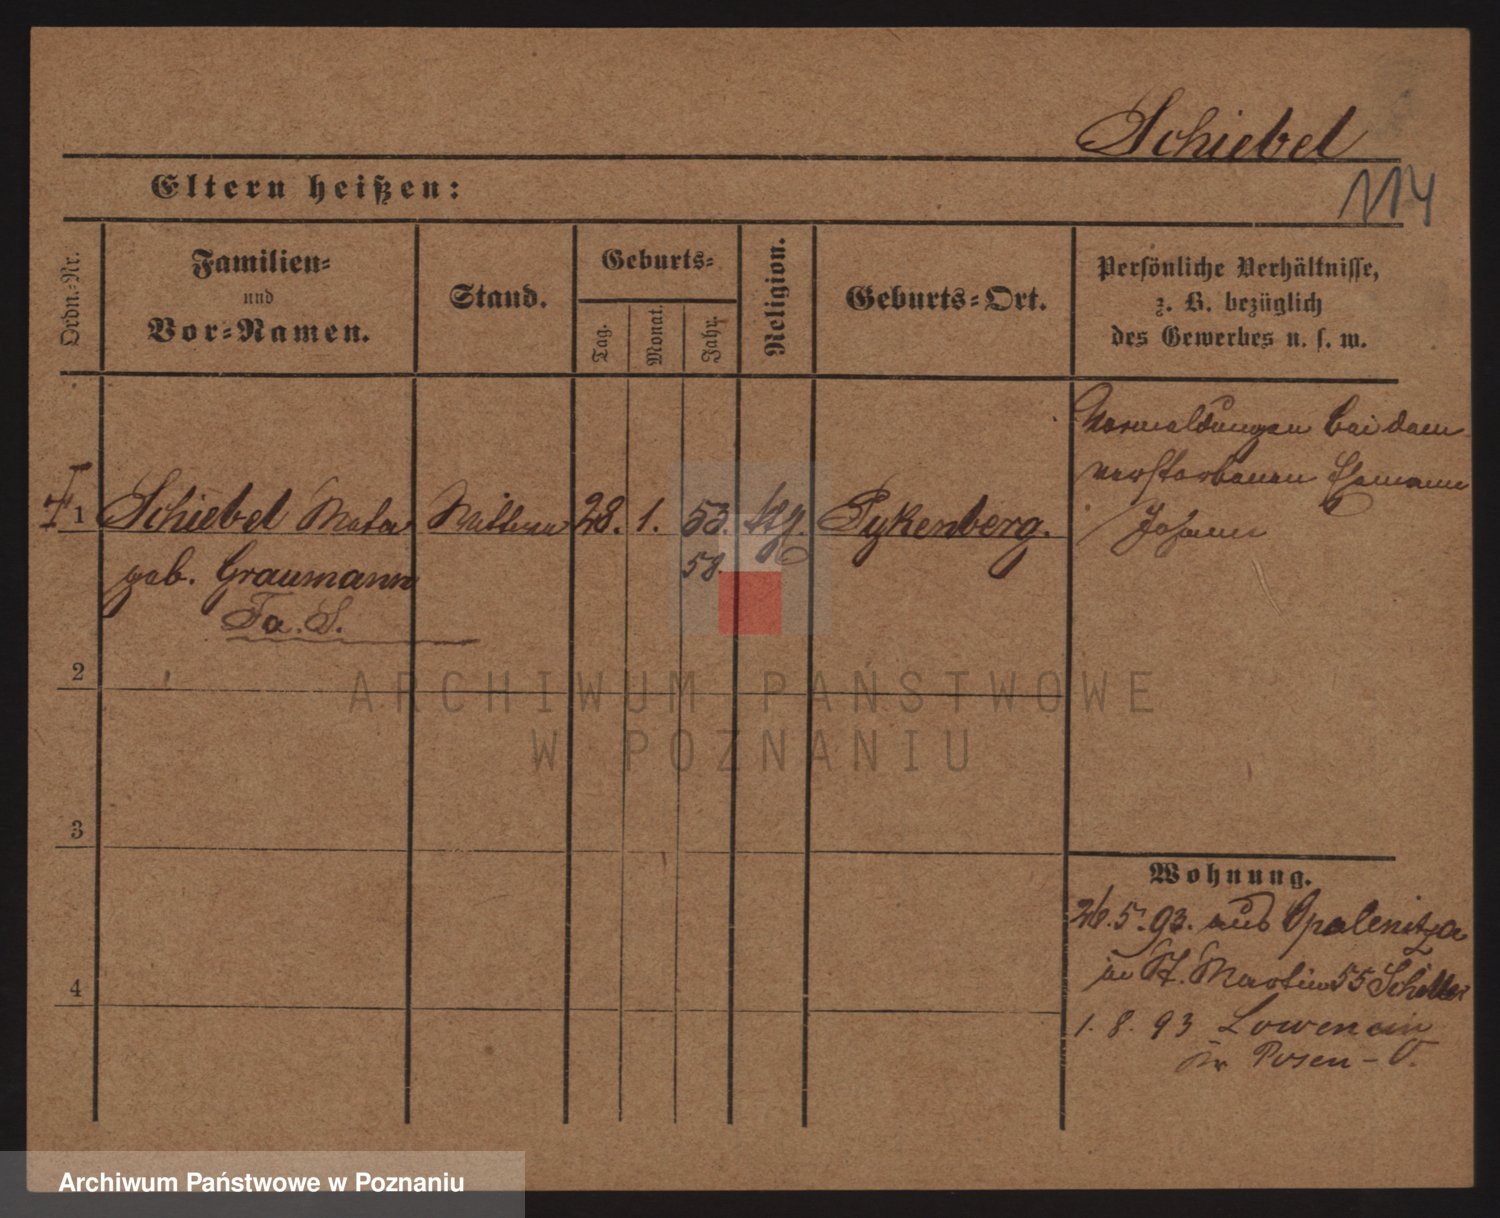 Schiebel
Eltern heißen:
114
Ordn.-Nr.
Familien-
und
Vor-Namen.
Stand.
Geburts-
Tag.
Monat.
Jahr.
Religion.
Geburts-Ort.
Persönliche Verhältnisse,
z. B. bezüglich
des Gewerbes u. s. w.
Vormeldungen bei dem
verstorbenen Ehemann
Johann
1 Schiebel Wittwe 28. 1. 53. Pykenberg.
geb. Graumann 58.
Fa. S.
2
3
4
Wohnung.
26. 5. 93. aus Opalenitza
in St. Martin 55 Schiller
1. 8. 93
in Posen - O.
ARCHIWUM PAŃSTWOWE
W POZNANIU
Archiwum Państwowe w Poznaniu